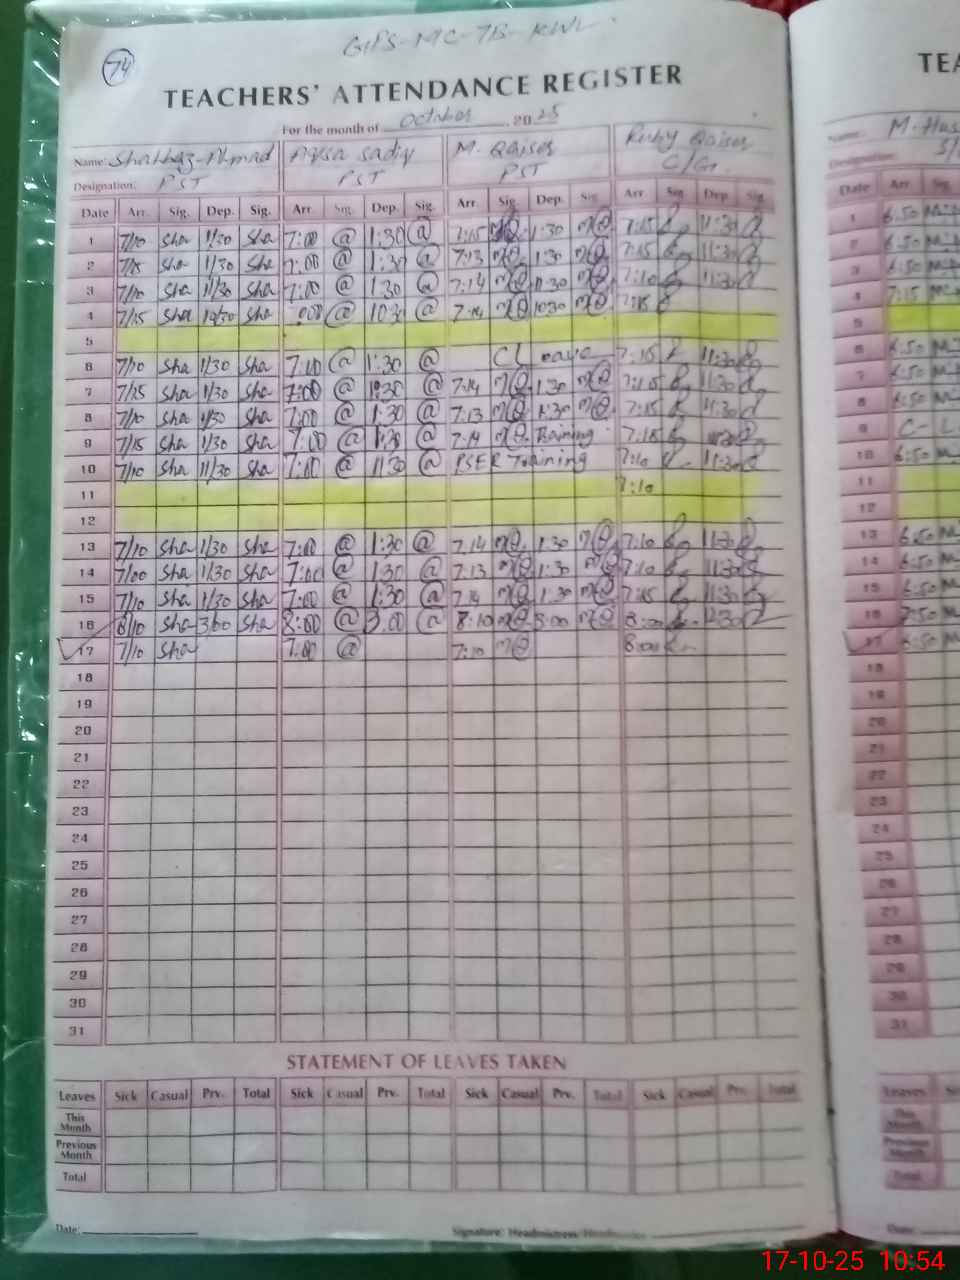 74
GPS-MC-7B-KWL
TEACHERS' ATTENDANCE REGISTER
For the month of October, 2025
Name: Shahbaz-Ahmad Aqsa Sadiq M. Qaiser Ruby Qaiser
Designation: PST PST PST C/Gr.
Date Arr. Sig. Dep. Sig. Arr Sig. Dep. Sig. Arr. Sig. Dep. Sig. Arr. Sig. Dep Sig.
1 7/10 Sha 1/30 Sha 7:00 @ 1:30 @ 7:15 MQ 1:30 MQ 7:15 11:30
2 7/15 Sha 1/30 Sha 7:00 @ 1:30 @ 7:13 MQ 1:30 MQ 7:15 11:30
3 7/10 Sha 11/30 Sha 7:00 @ 1:30 @ 7:14 MQ 11:30 MQ 7:10 11:30
4 7/15 Sha 10/30 Sha 7:00 @ 10:30 @ 7:14 MQ 10:30 MQ 7:15
5
6 7/10 Sha 1/30 Sha 7:00 @ 1:30 @ CL leave 7:15 11:30
7 7/15 Sha 1/30 Sha 7:00 @ 1:30 @ 7:14 MQ 1:30 MQ 7:15 11:30
8 7/10 Sha 1/30 Sha 7:00 @ 1:30 @ 7:13 MQ 1:30 MQ 7:15 11:30
9 7/15 Sha 1/30 Sha 7:00 @ 1:30 @ 7:14 MQ Training 7:15 11:30
10 7/10 Sha 11/30 Sha 7:00 @ 11:30 @ PSER Training 7:10 11:30
11 7:10
12
13 7/10 Sha 1/30 Sha 7:00 @ 1:30 @ 7:14 MQ 1:30 MQ 7:10 11:30
14 7/00 Sha 1/30 Sha 7:00 @ 1:30 @ 7:13 MQ 1:30 MQ 7:10 11:30
15 7/10 Sha 1/30 Sha 7:00 @ 1:30 @ 7:14 MQ 1:30 MQ 7:15 11:30
16 8/10 Sha 3/00 Sha 8:00 @ 3:00 @ 8:10 MQ 3:00 MQ 8:00 12:30
17 7/10 Sha 7:00 @ 7:10 MQ 8:00
18
19
20
21
22
23
24
25
26
27
28
29
30
31
STATEMENT OF LEAVES TAKEN
Leaves Sick Casual Prv. Total Sick Casual Prv. Total Sick Casual Prv. Total Sick Casual Prv. Total
This Month
Previous Month
Total
Date: Signature: Headmistress/Headmaster
TEA
Name: M. Hus
Designation:
Date Arr Sig.
1 6:50
2 6:50
3 6:50
4 7:15
5
6 6:50
7 6:50
8 6:50
9 C-L
10 6:50
11
12
13 6:50
14 6:50
15 6:50
16 7:50
17 6:50
18
19
20
21
22
23
24
25
26
27
28
29
30
31
Leaves
This Month
Previous Month
Total
Date:
17-10-25 10:54